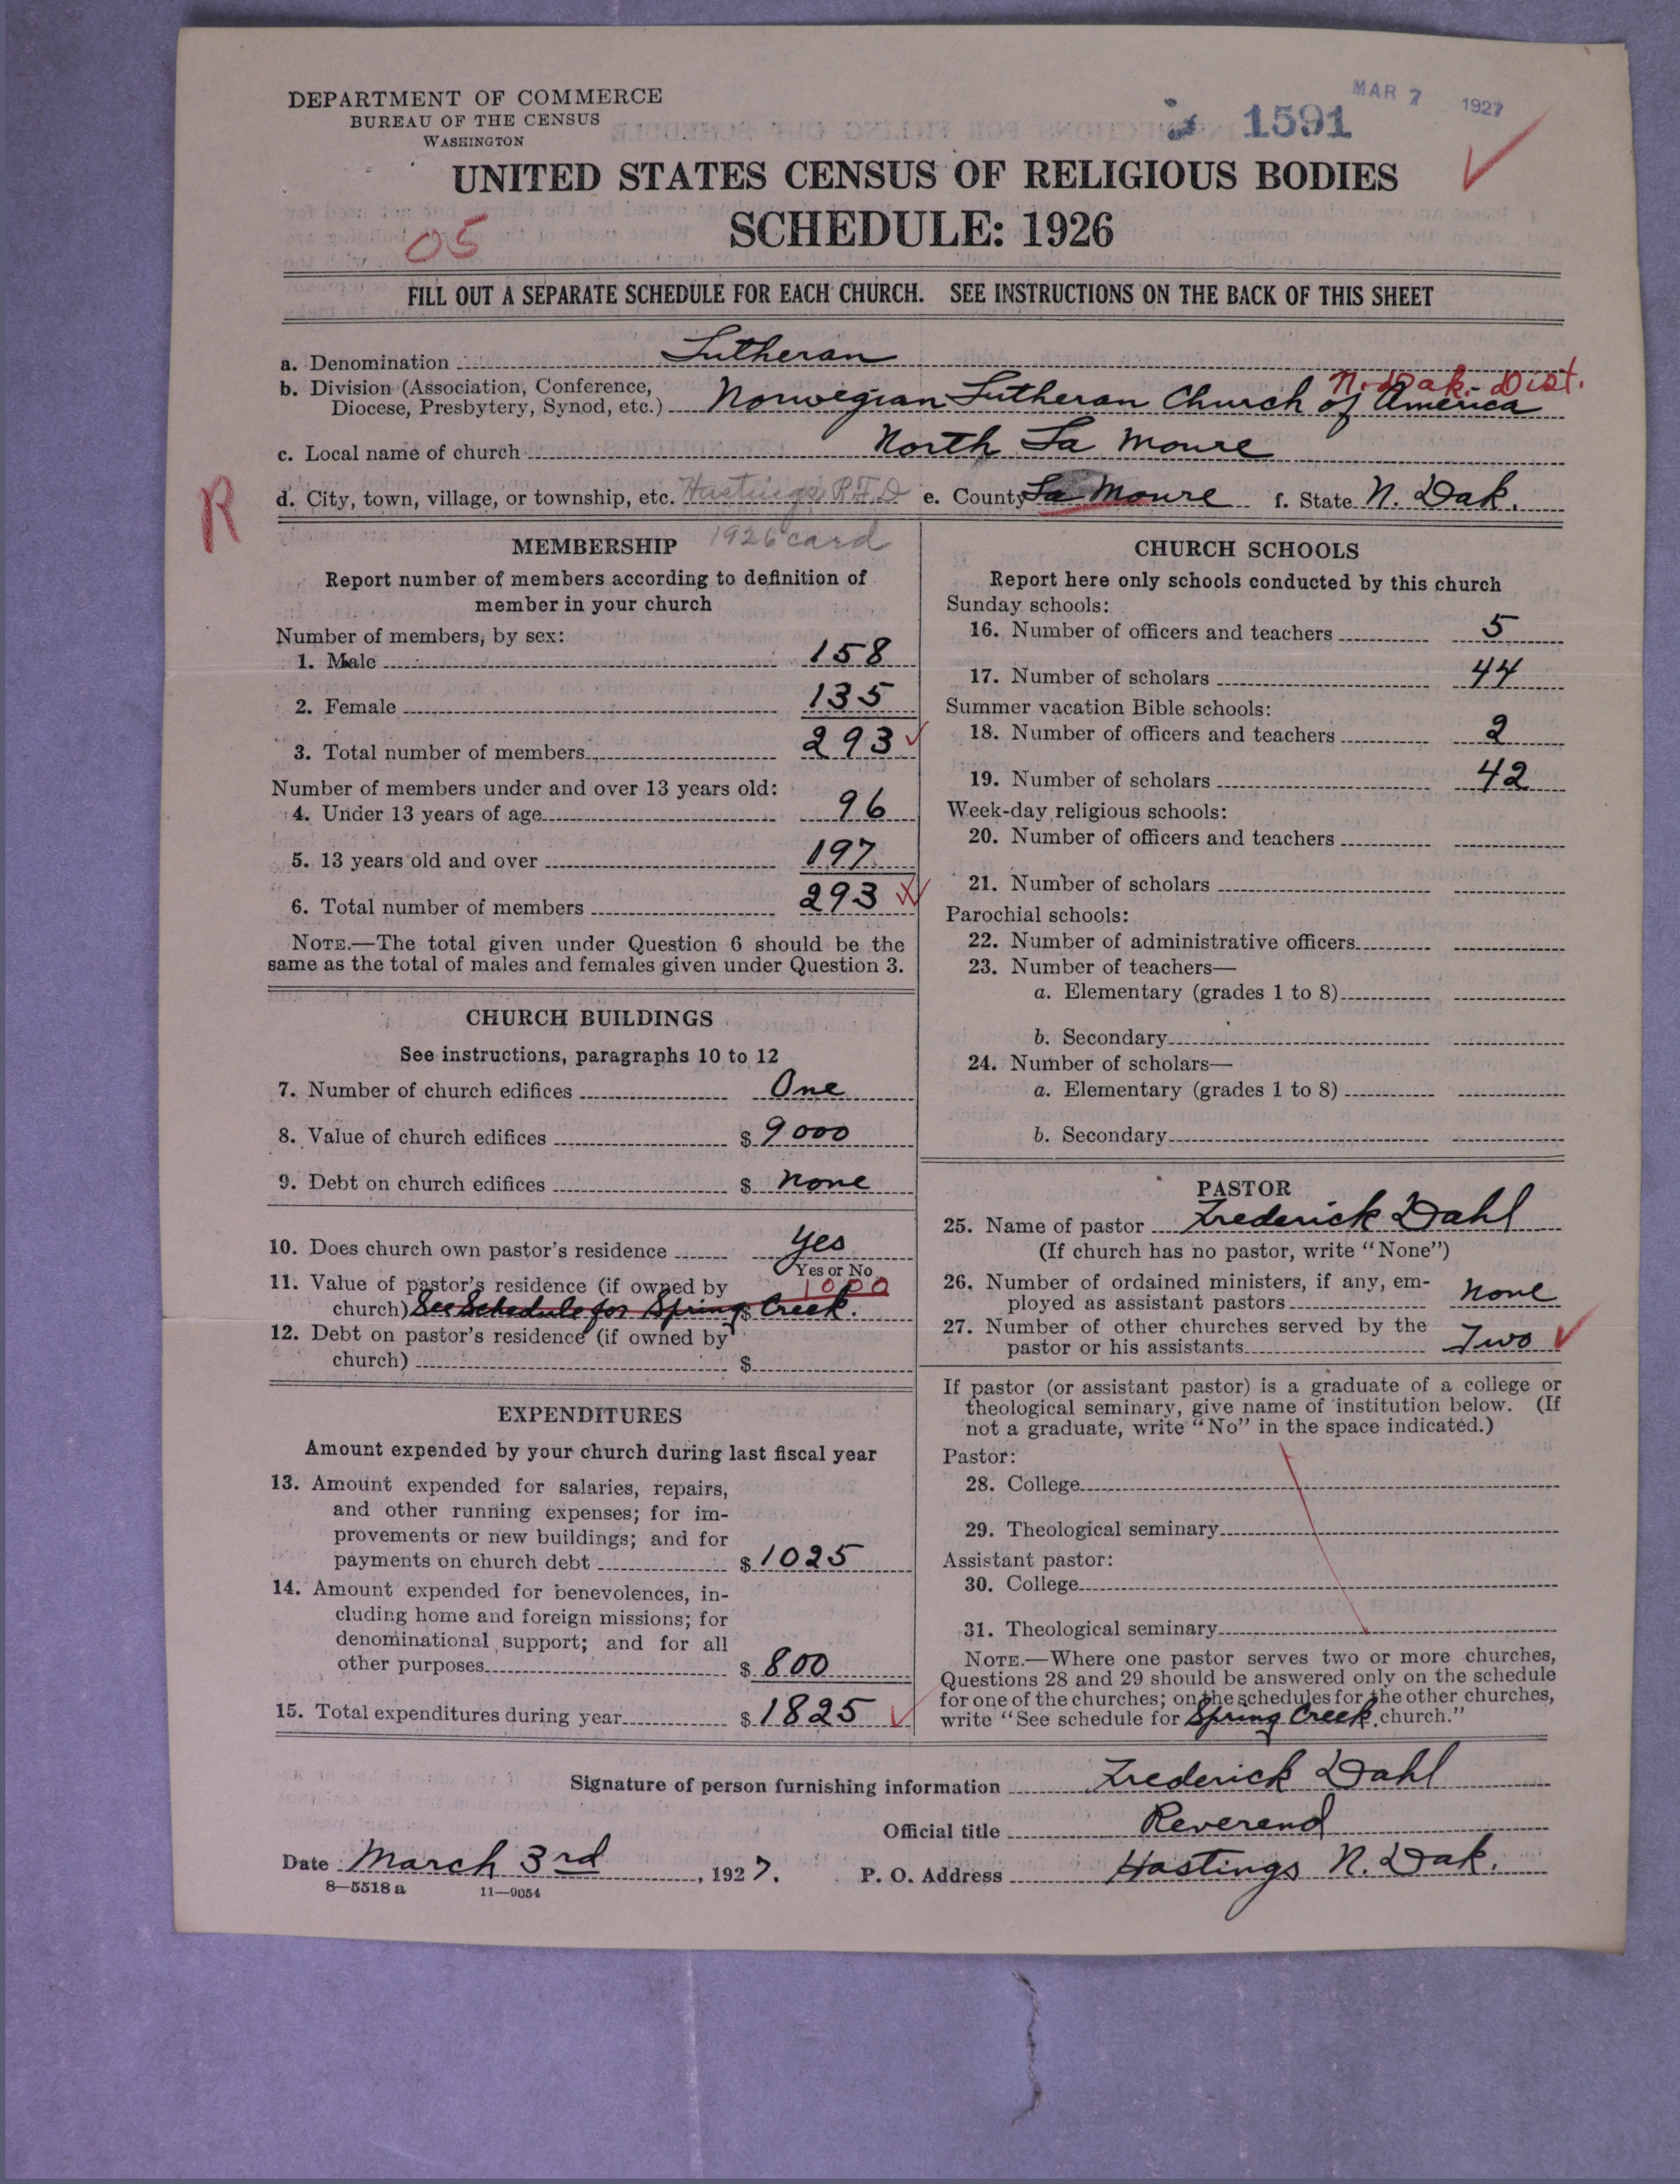 DEPARTMENT OF COMMERCE
BUREAU OF THE CENSUS
WASHINGTON
1591
MAR 7 1927
UNITED STATES CENSUS OF RELIGIOUS BODIES
SCHEDULE: 1926
05
FILL OUT A SEPARATE SCHEDULE FOR EACH CHURCH. SEE INSTRUCTIONS ON THE BACK OF THIS SHEET
a. Denomination Lutheran
N. Dak. Dist.
b. Division (Association, Conference,
Diocese, Presbytery, Synod, etc.) Norwegian Lutheran Church of America
c. Local name of church North La Moure
R
d. City, town, village, or township, etc. Hastings R.F.D e. County La Moure f. State N. Dak.
1926 card
MEMBERSHIP
Report number of members according to definition of
member in your church
Number of members, by sex:
1. Male 158
2. Female 135
3. Total number of members 293
Number of members under and over 13 years old:
4. Under 13 years of age 96
5. 13 years old and over 197
6. Total number of members 293
NOTE.—The total given under Question 6 should be the
same as the total of males and females given under Question 3.
CHURCH BUILDINGS
See instructions, paragraphs 10 to 12
7. Number of church edifices One
8. Value of church edifices $ 9000
9. Debt on church edifices $ none
10. Does church own pastor's residence yes
Yes or No
11. Value of pastor's residence (if owned by 1000
church) See Schedule for Spring $ Creek.
12. Debt on pastor's residence (if owned by
church) $
EXPENDITURES
Amount expended by your church during last fiscal year
13. Amount expended for salaries, repairs,
and other running expenses; for im-
provements or new buildings; and for
payments on church debt $ 1025
14. Amount expended for benevolences, in-
cluding home and foreign missions; for
denominational support; and for all
other purposes $ 800
15. Total expenditures during year $ 1825
CHURCH SCHOOLS
Report here only schools conducted by this church
Sunday schools:
16. Number of officers and teachers 5
17. Number of scholars 44
Summer vacation Bible schools:
18. Number of officers and teachers 2
19. Number of scholars 42
Week-day religious schools:
20. Number of officers and teachers
21. Number of scholars
Parochial schools:
22. Number of administrative officers
23. Number of teachers—
a. Elementary (grades 1 to 8)
b. Secondary
24. Number of scholars—
a. Elementary (grades 1 to 8)
b. Secondary
PASTOR
25. Name of pastor Frederick Dahl
(If church has no pastor, write "None")
26. Number of ordained ministers, if any, em-
ployed as assistant pastors none
27. Number of other churches served by the
pastor or his assistants Two
If pastor (or assistant pastor) is a graduate of a college or
theological seminary, give name of institution below. (If
not a graduate, write "No" in the space indicated.)
Pastor:
28. College
29. Theological seminary
Assistant pastor:
30. College
31. Theological seminary
NOTE.—Where one pastor serves two or more churches,
Questions 28 and 29 should be answered only on the schedule
for one of the churches; on the schedules for the other churches,
write "See schedule for Spring Creek church."
Signature of person furnishing information Frederick Dahl
Official title Reverend
Date March 3rd, 1927. P. O. Address Hastings N. Dak.
8—5518 a 11—9054